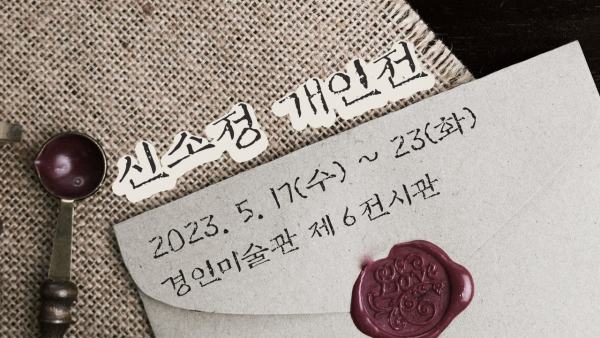 신소정 개인전
2023. 5. 17(수) ~ 23(화)
경인미술관 제 6 전시관
Love